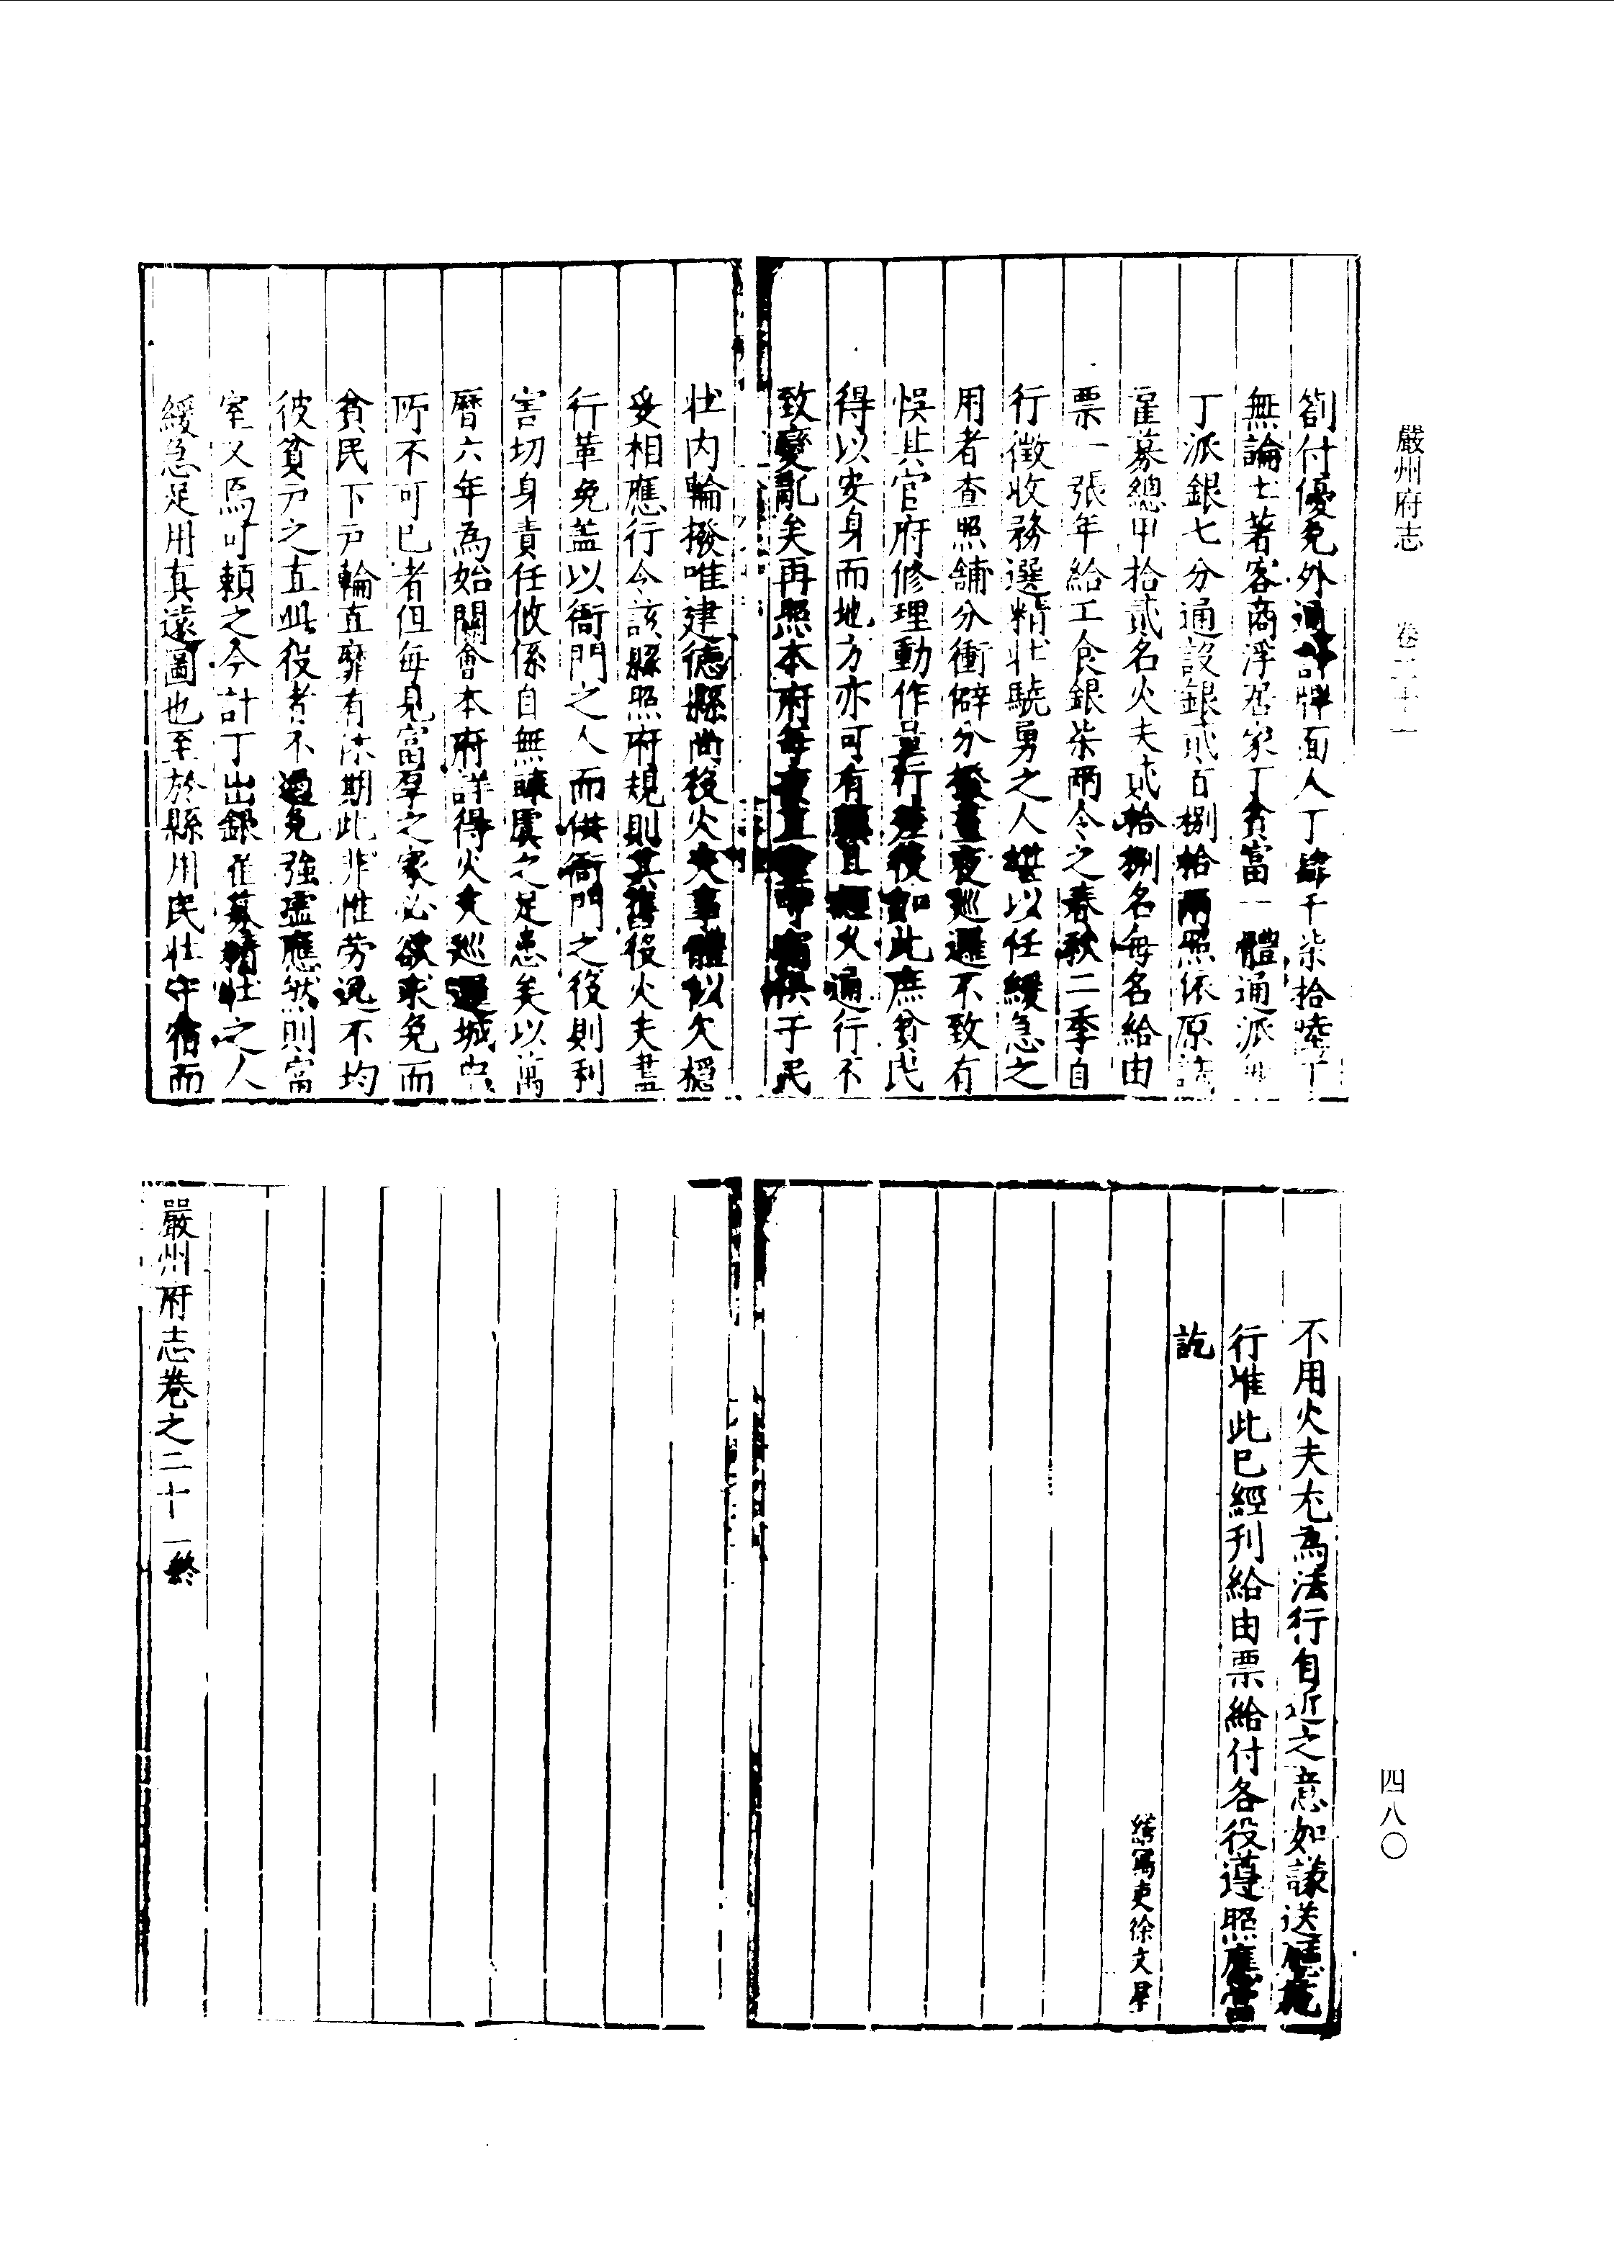 嚴州府志 卷二十一
劄付優免外通計牌面人丁肆千柒拾陸丁
無論土著客商浮居家丁貧富一體通派每
丁派銀七分通設銀貳百捌拾兩照依原議
雇募總甲拾貳名火夫貳拾捌名每名給由
票一張年給工食銀柒兩令之春秋二季自
行徵收務選精壯驍勇之人堪以任緩急之
用者查照舖分衝僻分撥晝夜巡邏不致有
悞其官府修理動作量行差役如此庶貧民
得以安身而地方亦可有賴且經久通行不
致變亂矣再照本府每
于民
壯内輪撥唯建德縣尚役火夫事體似欠穩
妥相應行令該縣照府規則其舊役火夫盡
行革免盖以衙門之人而供衙門之役則利
害切身責任攸係自無疎虞之足患矣以萬
曆六年為始關會本府詳得火夫巡邏城中
所不可已者但每見富厚之家必欲求免而
貧民下戸輪直靡有休期此非惟勞逸不均
彼貧戸之直此役者不過免強虛應然則富
室又焉可賴之今計丁出銀雇募精壯之人
緩急足用真遠圖也至於縣用民壯守宿而
不用火夫尤為法行自近之意如議送
行准此已經刊給由票給付各役遵照應當
訖
繕寫吏徐文
嚴州府志卷之二十一終
四八〇